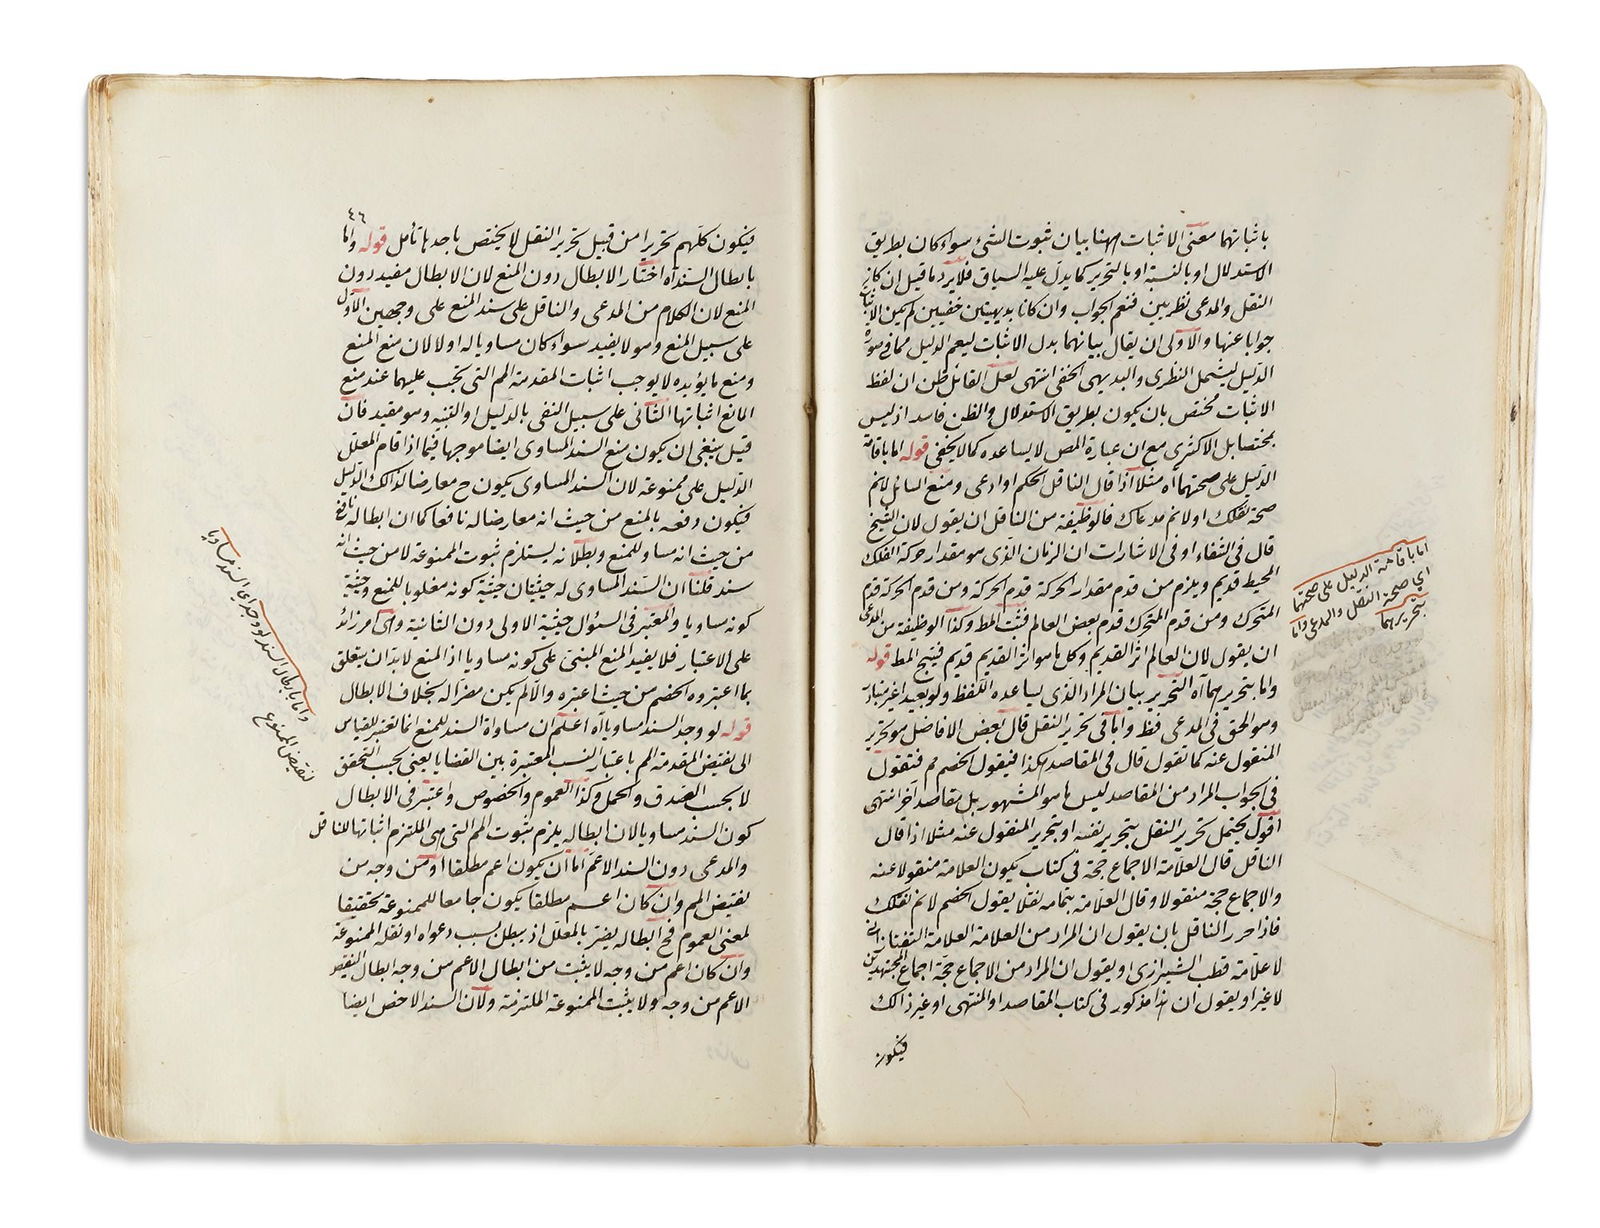 باثباتهما معنى الاثبات ههنا بيان ثبوت الشئ سواء كان بطريق
الاستدلال او بالنسبة او بالتحرير كما يدل عليه السياق فلا يرد ما قيل ان كان
النقل والمدعى نظريين فنعم الجواب وان كانا بديهيتين خفيين لم يكن الاثبات
جوابا عنها والاولى ان يقال بيانهما بدل الاثبات ليعم الدليل مما في صورة
الدليل ليشمل النظرى والبديهى الخفى انتهى لعل القائل ظن ان لفظ
الاثبات مختص بان يكون بطريق الاستدلال والظن فاسد اذ ليس
بمختص بل الاكثرى مع ان عبارة المص لا يساعده كما لا يخفى قوله اما باقامة
الدليل على صحتهما آه مثلا اذا قال الناقل الحكم او ادعى ومنع السائل لانم
صحة نقلك او لانم مدعاك فالوظيفة من الناقل ان يقول لان الشيخ
قال فى الشفاء او فى الاشارات ان الزمان الذى هو مقدار حركة الفلك
المحيط قديم ويلزم من قدم مقدار الحركة قدم الحركة ومن قدم الحركة قدم
المتحرك ومن قدم المتحرك قدم بعض العالم فثبت المط وكذا الوظيفة من المدعى
ان يقول لان العالم اثر القديم وكل ما هو اثر القديم قديم فينتج المط قوله
واما بتحريرهما آه التحرير بيان المراد الذى يساعده اللفظ ولو بعيد اغير متبادر
وهو الحق فى المدعى فظ واما فى تحرير النقل قال بعض الافاضل هو تحرير
المنقول عنه كما تقول قال فى المقاصد هكذا فيقول الخصم مم فنقول
فى الجواب المراد من المقاصد ليس ما هو المشهور بل مقاصد آخر انتهى
اقول يحتمل تحرير النقل بتحرير نفسه او بتحرير المنقول عنه مثلا اذا قال
الناقل قال العلامة الاجماع حجة فى كتاب يكون العلامة منقولا عنه
والاجماع حجة منقولا وقال العلامة بتمامه نقلا يقول الخصم لانم نقلك
فاذا حرر الناقل بان يقول ان المراد من العلامة العلامة التفتازانى
لا علامة قطب الشيرازى او يقول ان المراد من الاجماع حجة اجماع المجتهدين
لا غير او يقول ان هذا مذكور فى كتاب المقاصد او المنتهى او غير ذالك
فيكون
اما باقامة الدليل على صحتهما
اي صحة النقل والمدعى واما
بتحريرهما
٤٦
فيكون كلهم تحريرا من قبيل تحرير النقل لا يختص باحدها تأمل قوله واما
بابطال السند آه اختار الابطال دون المنع لان الابطال مفيد دون
المنع لان الكلام من المدعى والناقل على سند المنع على وجهين الاول
على سبيل المنع وهو لا يفيد سواء كان مساويا له اولا لان منع المنع
ومنع ما يؤيده لا يوجب اثبات المقدمة المم التى يجب عليهما عند منع
المانع اثباتها الثانى على سبيل النفى بالدليل او التنبيه وهو مفيد فان
قيل ينبغى ان يكون منع السند المساوى ايضا موجها فيما اذا قام المعلل
الدليل على ممنوعه لان السند المساوى يكون ح معارضا لذالك الدليل
فيكون دفعه بالمنع من حيث انه معارضا له نافعا كما ان ابطاله نافع
من حيث انه مساو للمنع وبطلانه يستلزم ثبوت الممنوعة لا من حيث انه
سند قلنا ان السند المساوى له حيثيتان حيثية كونه مغلوبا للمنع وحيثية
كونه مساويا والمعتبر فى السئوال حيثية الاولى دون الثانية وهى امر زائد
على الاعتبار فلا يفيد المنع المبنى على كونه مساويا اذ المنع لابد ان يتعلق
بما اعتبروه الخصم من حيث اعتبره والا لم يكن مضرا له بخلاف الابطال
قوله لو وجد السند مساويا آه اعلم ان مساواة السند للمنع انما تعتبر للقياس
الى نقيض المقدمة المم باعتبار النسب المعتبرة بين القضايا يعنى بحسب التحقق
لا بحسب الصدق والحمل وكذا العموم والخصوص واعتبر فى الابطال
كون السند مساويا لان ابطاله يلزم ثبوت المم التى هى الملتزم اثباتها للناقل
والمدعى دون السند الاعم اما ان يكون اعم مطلقا او من وجه من
نقيض المم وان كان اعم مطلقا يكون جامعا للممنوعة تحقيقا
لمعنى العموم فح ابطاله يضر بالمعلل اذ يبطل بسبب دعواه او نقله الممنوعة
وان كان اعم من وجه لا يثبت من ابطال الاعم من وجه ابطال النقيض
الاعم من وجه ولا يثبت الممنوعة الملتزمة ولان السند الاخص ايضا
واما بابطال السند لو وجد اي السند مساويا
لنقيض الممنوع